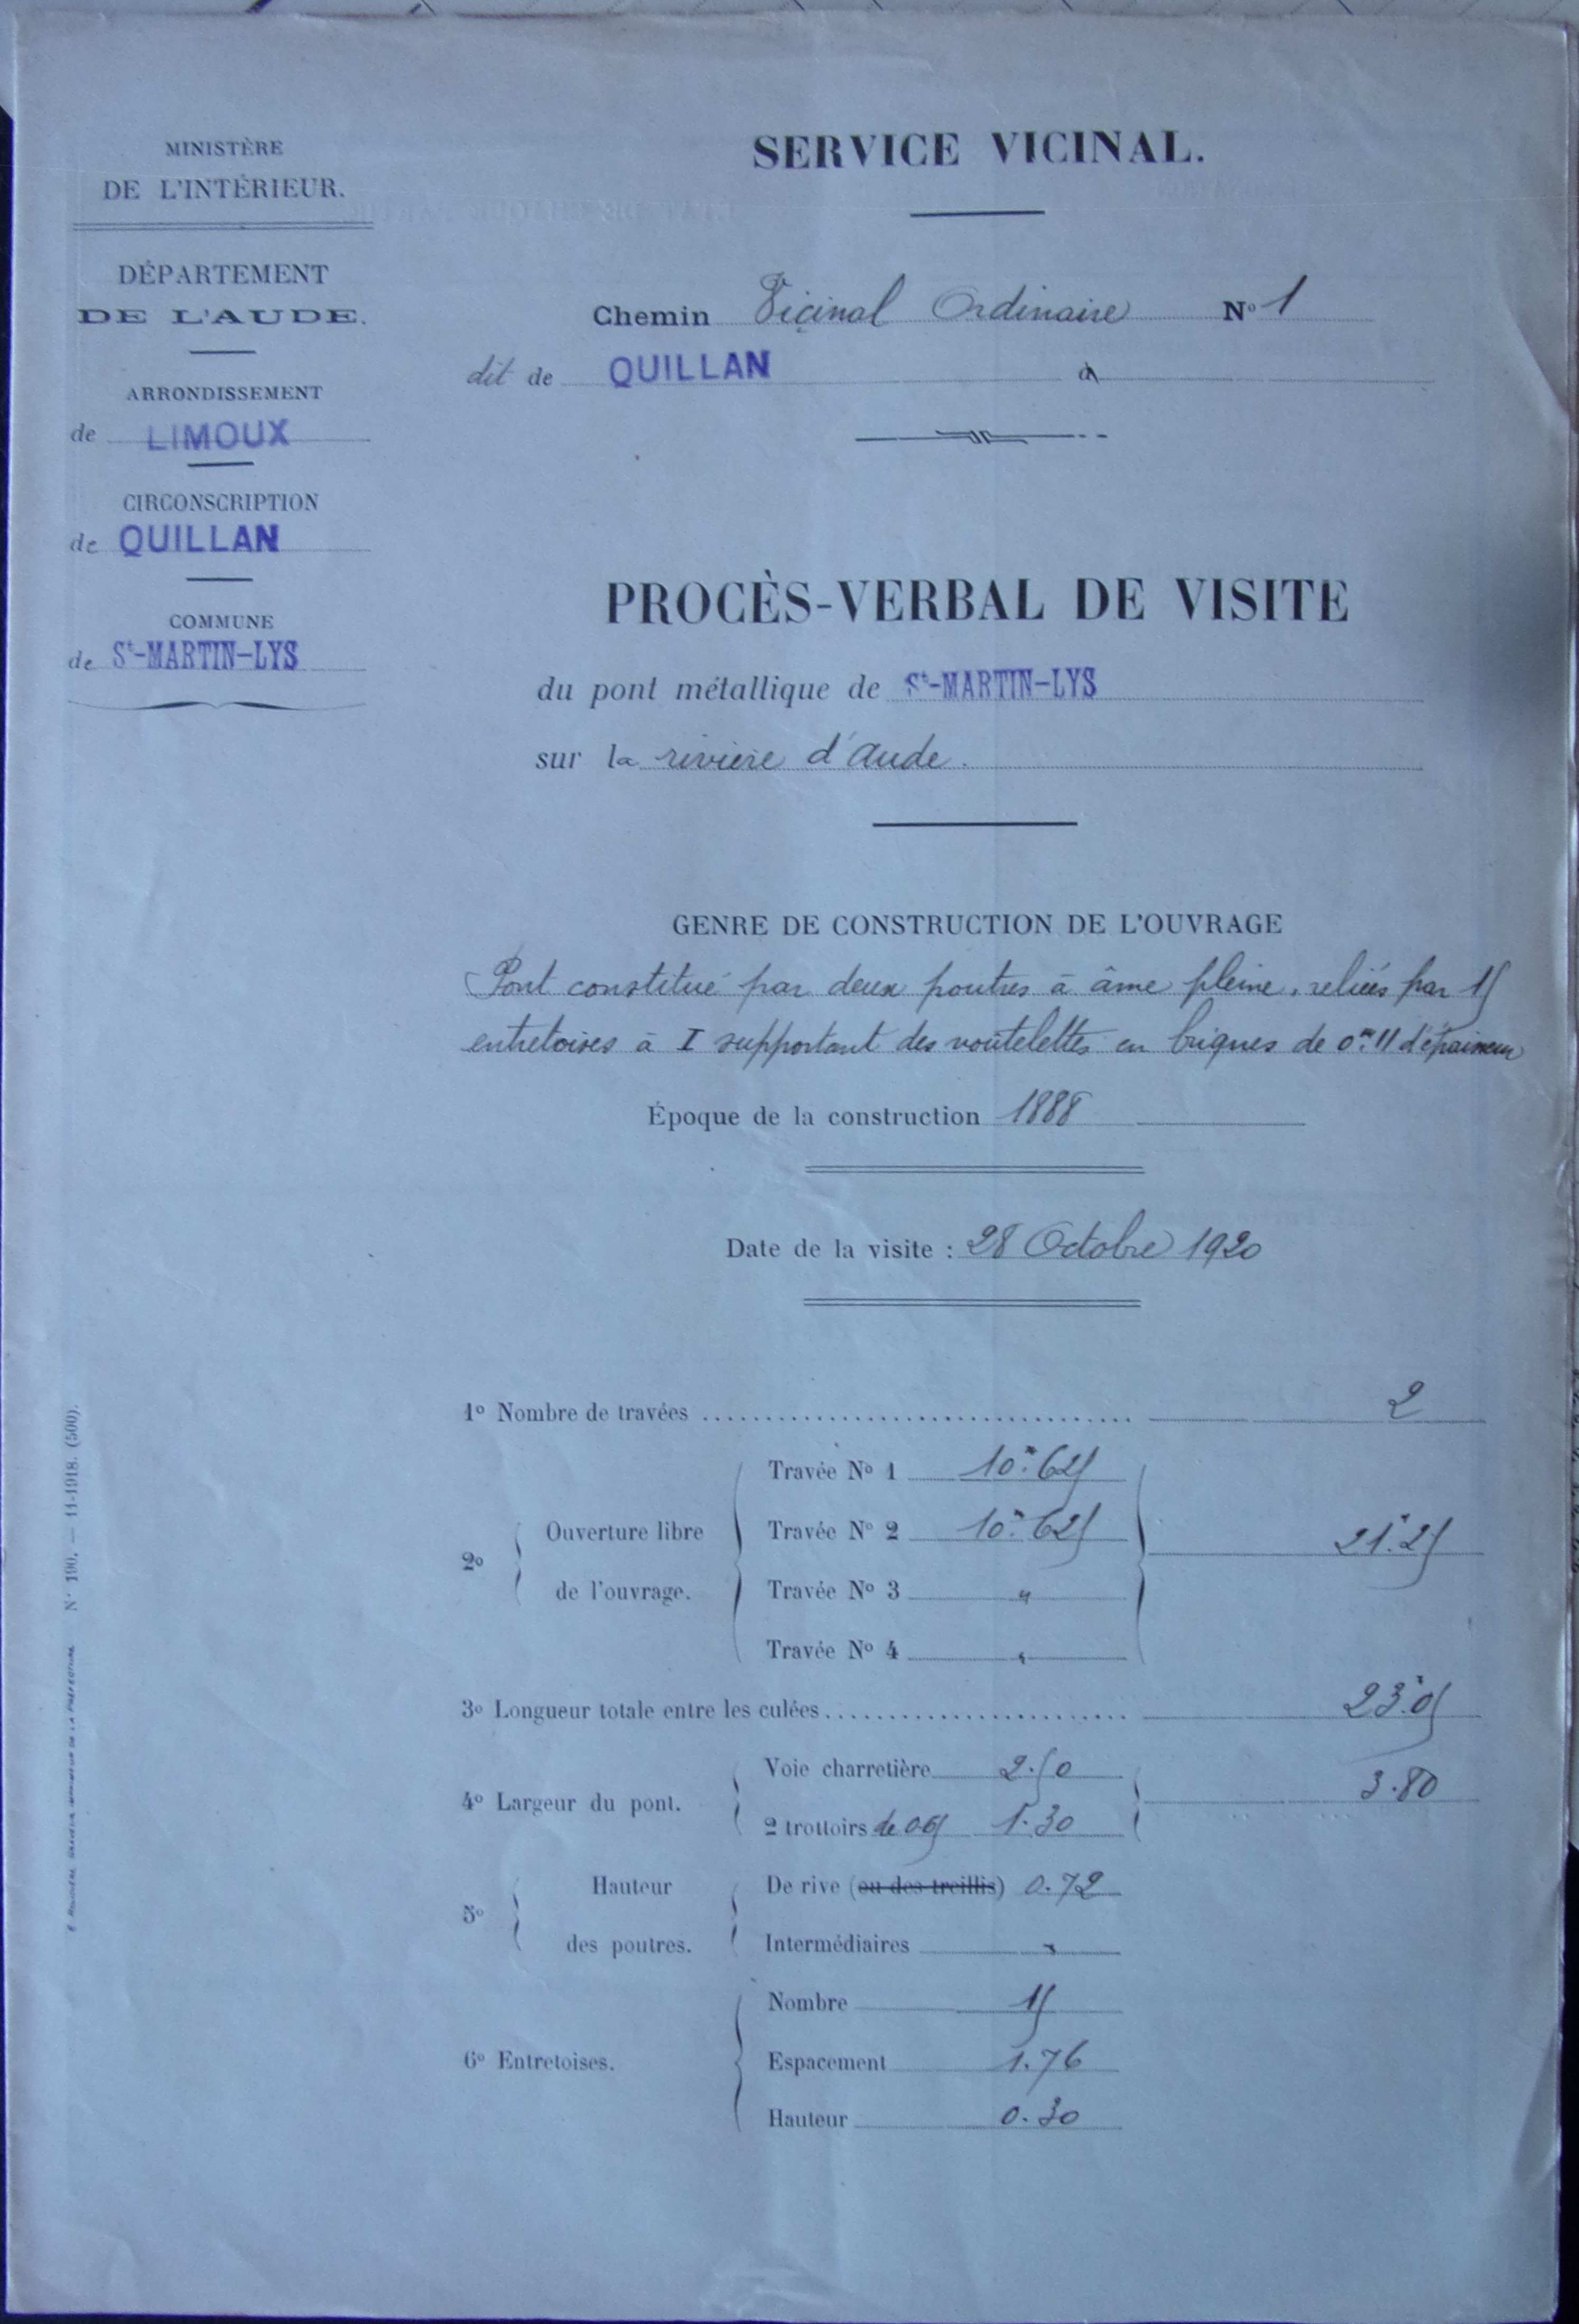 MINISTÈRE
DE L'INTÉRIEUR.
DÉPARTEMENT
DE L'AUDE.
ARRONDISSEMENT
de LIMOUX
CIRCONSCRIPTION
de QUILLAN
COMMUNE
de St-MARTIN-LYS
SERVICE VICINAL.
Chemin Vicinal Ordinaire No 1
dit de QUILLAN à
PROCÈS-VERBAL DE VISITE
du pont métallique de St-MARTIN-LYS
sur la rivière d'Aude.
GENRE DE CONSTRUCTION DE L'OUVRAGE
Pont constitué par deux poutres à âme pleine, reliées par 15
entretoises à I supportant des voûtelettes en briques de 0m11 d'épaisseur
Époque de la construction 1888
Date de la visite : 28 Octobre 1920
1o Nombre de travées .................................. 2
2o Ouverture libre de l'ouvrage. 21m.25
Travée No 1 10m.625
Travée No 2 10m.625
Travée No 3 "
Travée No 4 "
3o Longueur totale entre les culées........................ 23m.05
4o Largeur du pont. 3.80
Voie charretière 2.50
2 trottoirs de 065 1.30
5o Hauteur des poutres.
De rive (ou des treillis) 0.72
Intermédiaires "
6o Entretoises.
Nombre 15
Espacement 1.76
Hauteur 0.30
No 190. — 11-1918. (500).